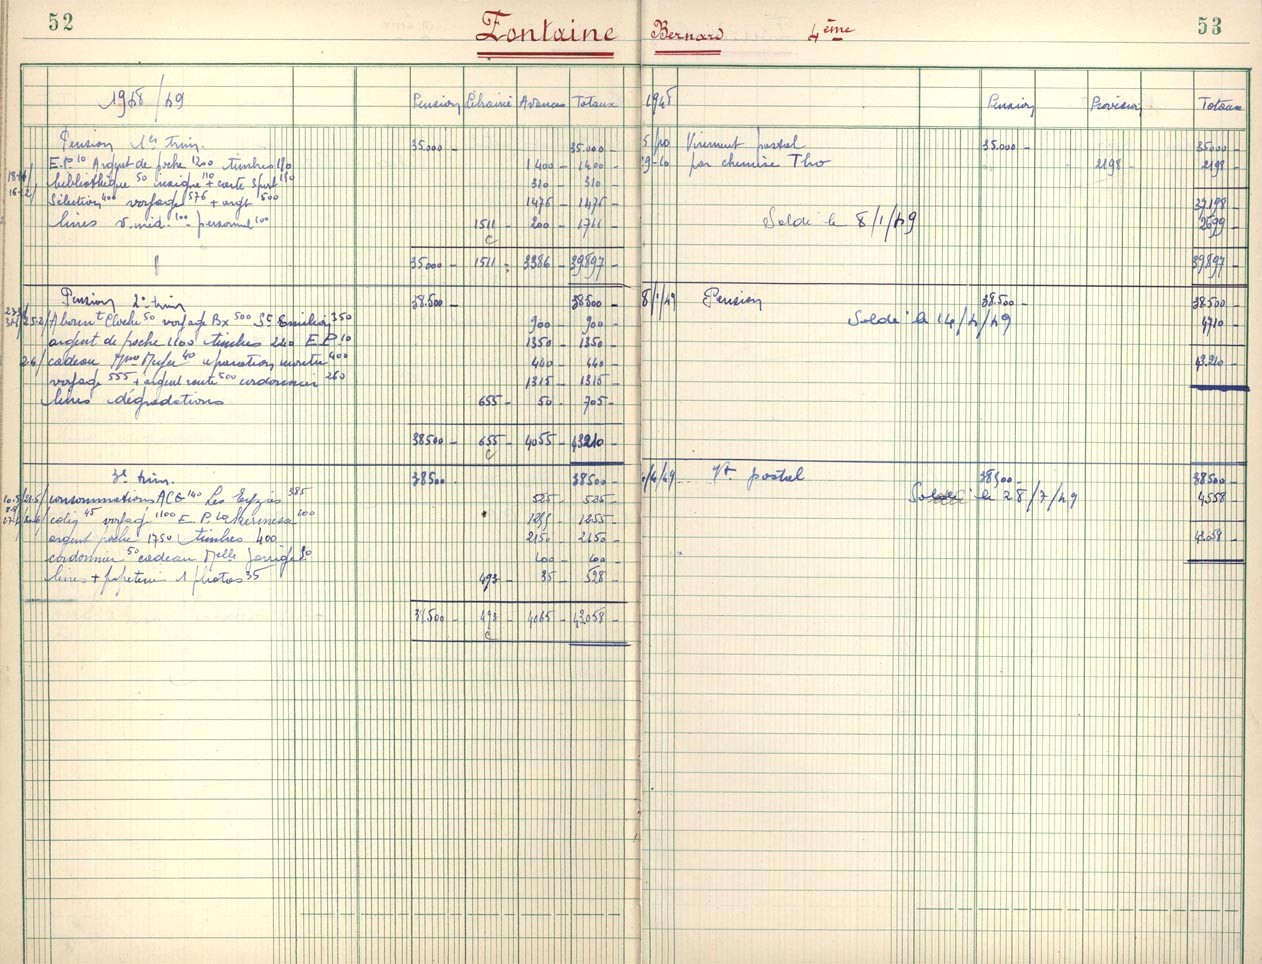 52
Fontaine Bernard 4ème
53
1948/49 Pension Librairie Avances Totaux
Pension 1er trim. 35.000 - 35.000 -
E.P. 10 Argent de poche 1200 timbres 1400 - 1400 -
bibliothèque 50 insigne 110 + carte Sport 150 310 - 310 -
Sélection 400 voyage 576 + argt 500 1476 - 1476 -
livres v. méd. 100 - personnel 100 1511 200 - 1711 -
c
35000 - 1511 - 3386 - 39897 -
Pension 2e trim 38.500 - 38500 -
Abonnt Cloche 50 voyage Bx 500 St Emilion 350 900 - 900 -
argent de poche 1100 timbres 240 E.P. 10 1350 - 1350 -
2.4/ cadeau 40 réparation montre 400 440 - 440 -
voyage 555 + argent route 500 cordonnier 260 1315 - 1315 -
livres dégradations 655 - 50 - 705 -
38500 - 655 - 4055 - 43210 -
c
3e trim. 38500 - 38500 -
consommations ACG 140 Les Eyzies 385 525 - 525 -
cotis 45 voyage 1100 E.P. 10 kermesse 100 1255 1255 -
argent poche 1750 timbres 400 2150 - 2150 -
cordonnier 50 cadeau Melle 100 - 100 -
livres + papeterie 1 photos 35 493 - 35 - 528 -
38500 - 493 - 4065 - 42058 -
c
1948 Pension Provision Totaux
5/10 Virement postal 35.000 - 35000 -
29-10 par chemise Tho 2198 - 2198 -
37198 -
Soldé le 8/1/49 2699 -
39897 -
8/1/49 Pension 38.500 - 38.500 -
Soldé le 14/4/49 4710 -
43.210 -
/4/49 Vt postal 38500 - 38500 -
Soldé le 28/7/49 4558
42058 -